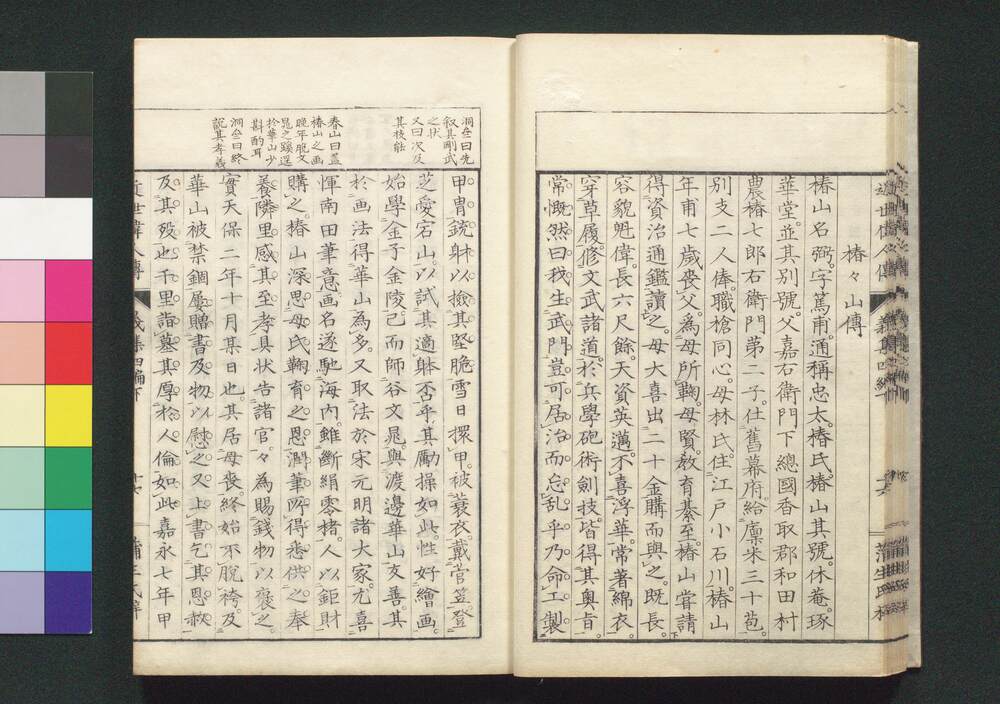 椿々山傳
椿山名弼。字篤甫。通稱忠太。椿氏。椿山其號。休菴。琢
華堂。並其別號。父嘉右衛門下總國香取郡和田村
農椿七郎右衛門第二子。仕舊幕府。給廩米三十苞。
別支二人俸。職槍同心。母林氏。住江戸小石川。椿山
年甫七歲喪父。爲母所鞠。母賢。敎育綦至。椿山嘗請
得資治通鑑讀之。母大喜出二十金購而與之。既長。
容貌魁偉。長六尺餘。天資英邁。不喜浮華。常著綿衣。
穿草履。修文武諸道。於兵學砲術劍技。皆得其奧旨。
常慨然曰我生武門。豈可居治而忘乱乎。乃命工製
甲冑銃。躰以檢其堅脆。雪日擐甲。被蓑衣。戴菅笠。登
芝愛宕山。以試其適躰否乎。其勵操如此。性好繪畫。
始學金子金陵。已而師谷文晁。與渡邊華山友善。其
於画法得華山為多。又取法於宋元明諸大家。尤喜
惲南田筆意。画名遂馳海內。雖斷絹零楮。人以鉅財
購之。椿山深思母氏鞠育之恩。潤筆所得悉供之奉
養。隣里感其至孝。具狀告諸官。々為賜錢物以褒之。
實天保二年十月某日也。其居母喪。終始不脫袴。及
華山被禁錮。屢贈書及物以慰之。又上書乞其恩赦。
及其歿也。千里詣墓。其厚於人倫如此。嘉永七年甲
洞奎曰先
叙其剛武
之狀
又曰次及
其技能
春山曰蓋
椿山之画
晚年脫文
晁之蹊逕
於華山少
斟酌耳
洞奎曰終
說其孝義
近世偉人傳
義集四編下
蒲生氏梓